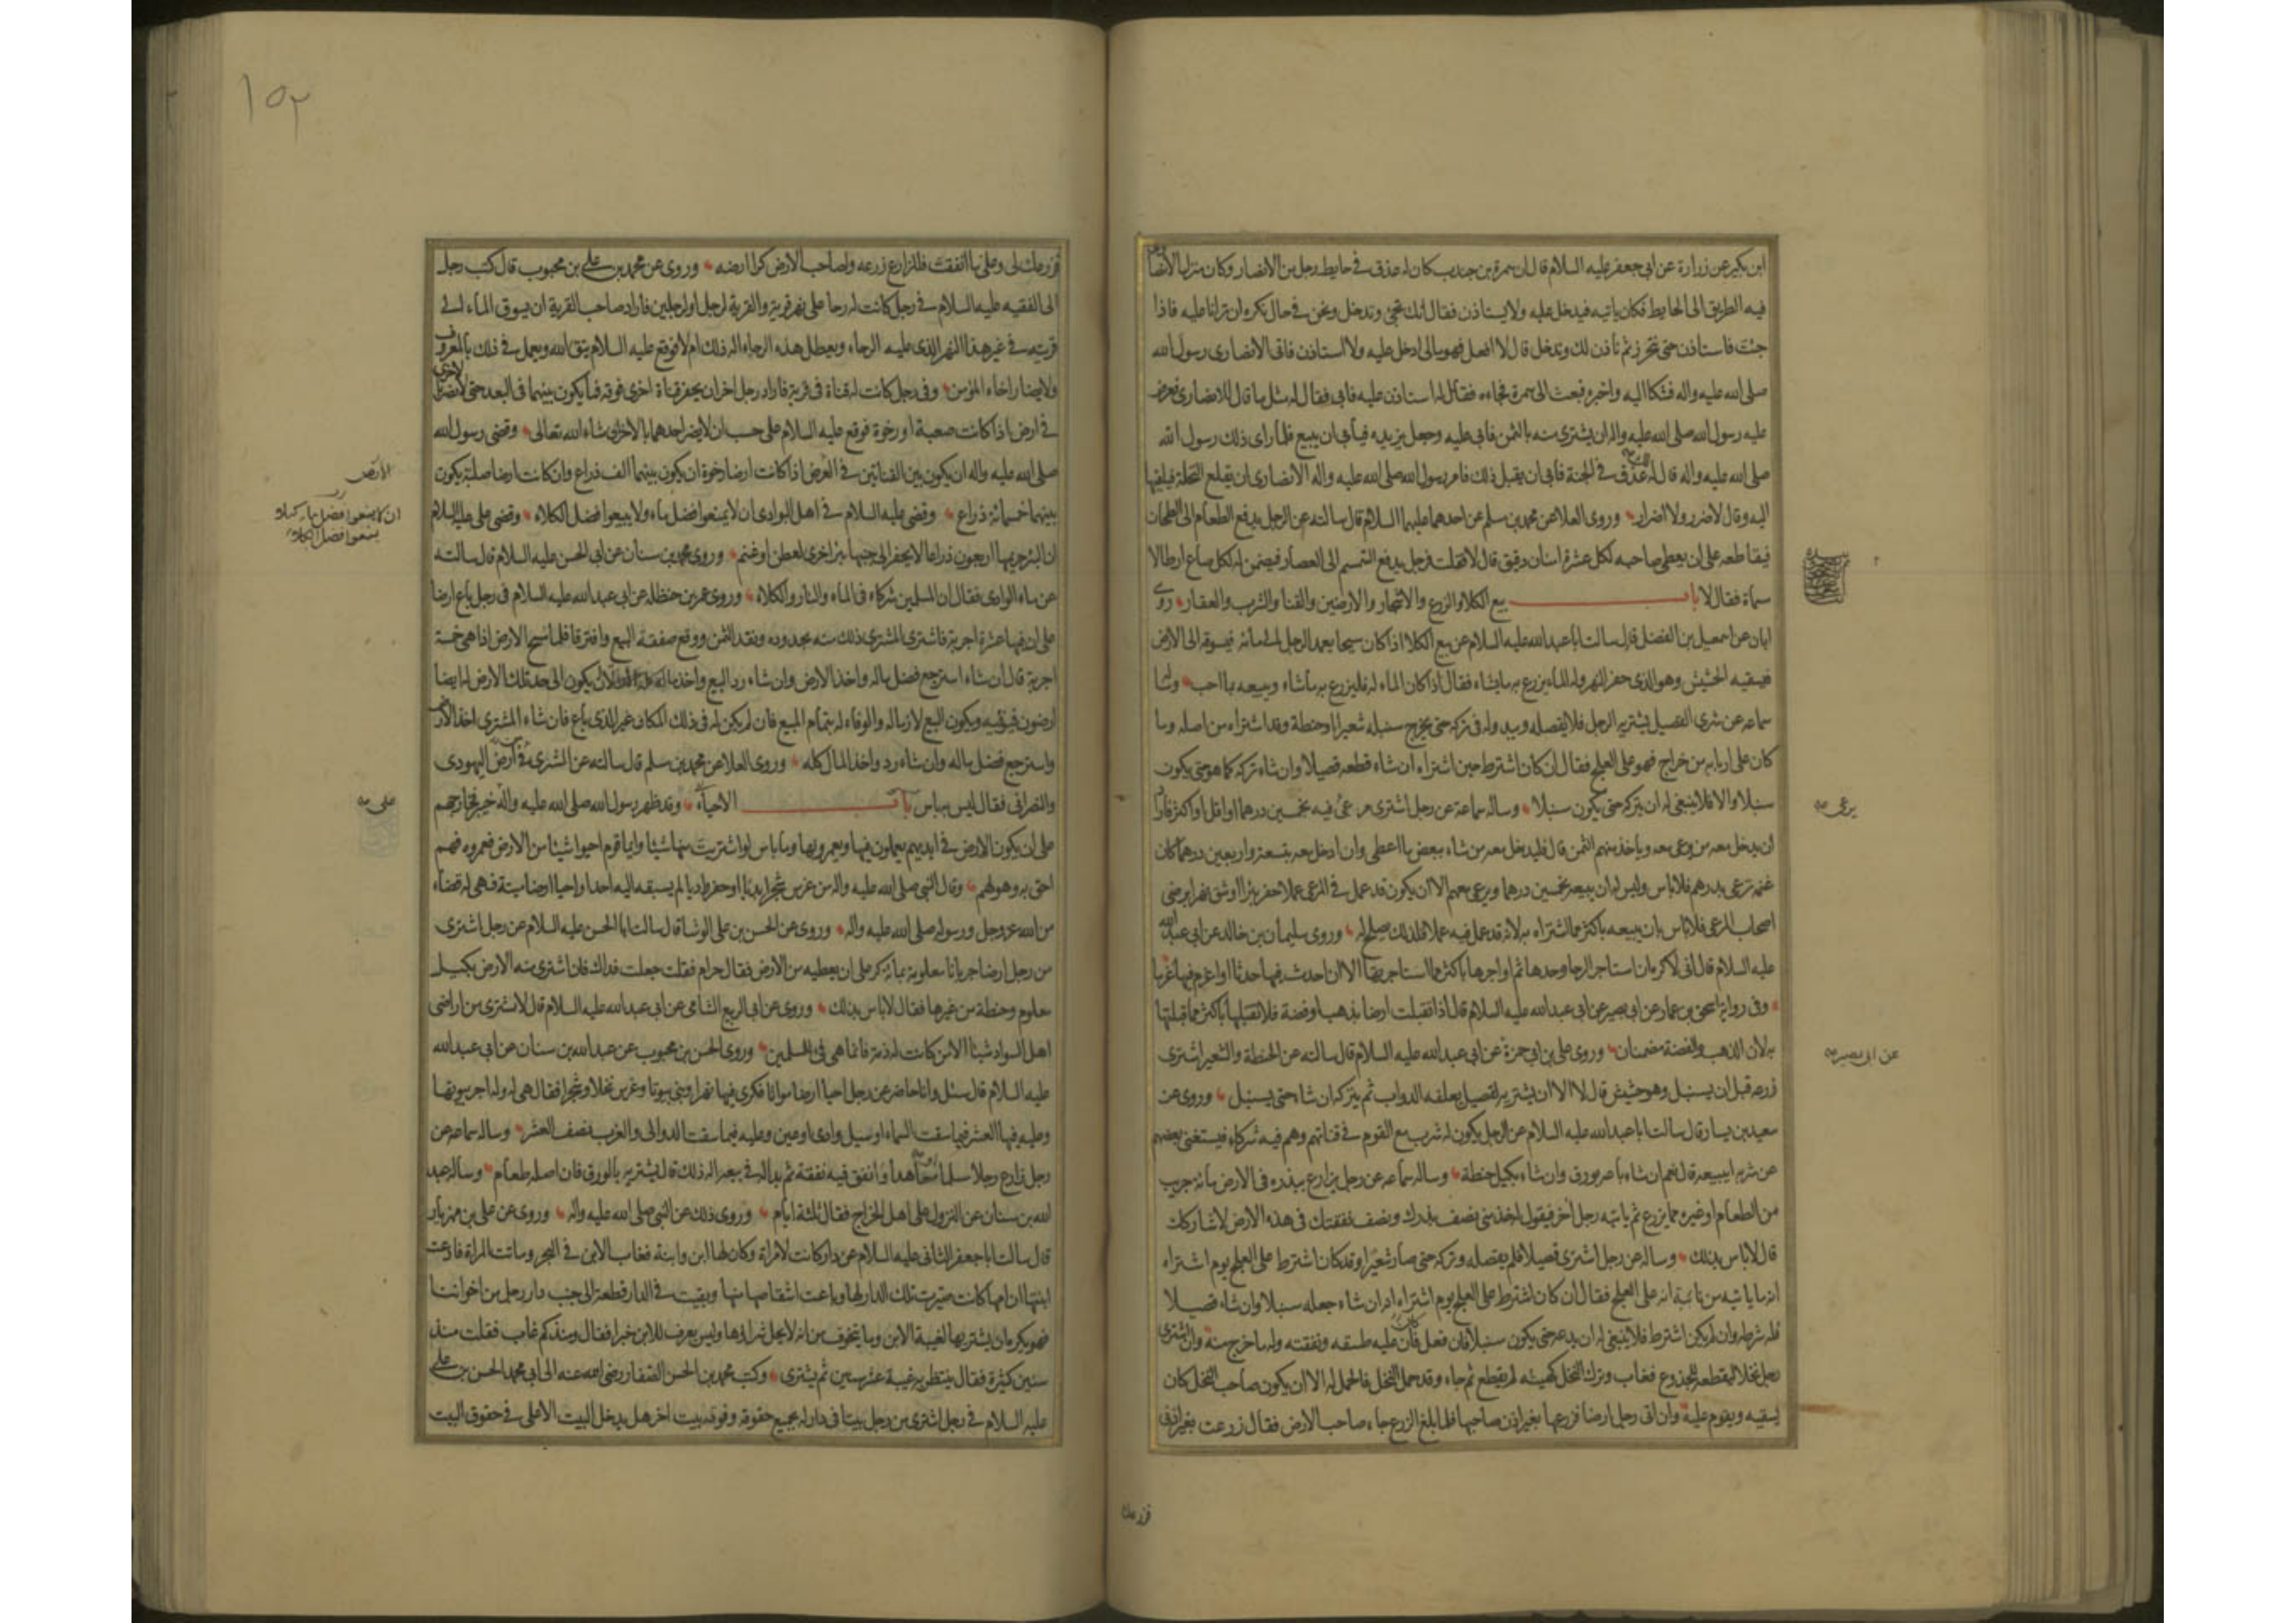 ابن بكير عن زرارة عن ابى جعفر عليه السلام قال ان سمرة بن جندب كان له عذق فى حايط رجل من الانصار وكان منزل الانصا
فيه الطريق الى الحايط فكان ياتيه فيدخل عليه ولا يستاذن فقال انك تجئ وتدخل ونحن فى حال نكره ان ترانا عليه فاذا
جئت فاستاذن حتى نتحرز ثم ناذن لك وتدخل قال لا افعل هو مالى ادخل عليه ولا استاذن فاتى الانصارى رسول الله
صلى الله عليه واله فشكا اليه واخبره فبعث الى سمرة فجاءه فقال له استاذن عليه فابى فقال له مثل ما قال للانصارى فعرض
عليه رسول الله صلى الله عليه واله ان يشترى منه بالثمن فابى عليه وجعل يزيده فيابى ان يبيع فلما راى ذلك رسول الله
صلى الله عليه واله قال له عذق فى الجنة فابى ان يقبل ذلك فامر رسول الله صلى الله عليه واله الانصارى ان يقلع النخلة فيلقيها
اليه وقال لا ضرر ولا اضرار وروى العلا عن محمد بن مسلم عن احدهما عليهما السلام قال سالته عن الرجل يدفع الطعام الى الطحان
فيقاطعه على ان يعطى صاحبه لكل عشرة امنان دقيق قال لا فقلت فرجل يدفع السمسم الى العصار فيضمن له لكل صاع ارطالا
مسماة فقال لا باب بيع الكلا والزرع والاشجار والارضين والقنا والشرب والعقار روى
ابان عن اسمعيل بن الفضل قال سالت ابا عبد الله عليه السلام عن بيع الكلا اذا كان سيحا يعمد الرجل الى مائه فيسوقه الى الارض
فيسقيه الحشيش وهو الذى حفر النهر وله الماء يزرع به ما يشاء فقال اذا كان الماء له فليزرع به ما شاء ويبيعه بما احب
سماعه عن شرى القصيل يشتريه الرجل فلا يقصله ويبدو له فى تركه حتى يخرج سنبله شعيرا او حنطة وقد اشتراه من اصله وما
كان على اربابه من خراج فهو على العلج فقال ان كان اشترط حين اشتراه ان شاء قطعه قصيلا وان شاء تركه كما هو حتى يكون
سنبلا والا فلا ينبغى له ان يتركه حتى يكون سنبلا وساله سماعة عن رجل اشترى مرعى فيه بخمسين درهما او اقل او اكثر فاراد
ان يدخل معه من يرعى معه وياخذ منهم الثمن قال فليدخل معه من شاء ببعض ما اعطى وان ادخل معه بتسعة واربعين درهما كان
غنمه ترعى بدرهم فلا باس وليس له ان يبيعه بخمسين درهما ويرعى معهم الا ان يكون قد عمل فى المرعى عملا حفر بئرا او شق نهرا برضى
اصحاب المرعى فلا باس بان يبيعه باكثر مما اشتراه به لانه قد عمل فيه عملا فلذلك يصلح له وروى سليمان بن خالد عن ابى عبد الله
عليه السلام قال انى لاكره ان استاجر الرحا وحدها ثم اواجرها باكثر مما استاجرتها الا ان احدث فيها حدثا او اغرم فيها غرما
وفى رواية اسحق بن عمار عن ابى بصير عن ابى عبد الله عليه السلام قال اذا تقبلت ارضا بذهب او فضة فلا تقبلها باكثر مما قبلتها
به لان الذهب والفضة مضمنان وروى على بن ابى حمزة عن ابى عبد الله عليه السلام قال سالته عن الحنطة والشعير اشترى
زرعه قبل ان يسنبل وهو حشيش قال لا الا ان يشتريه لقصيل يعلفه الدواب ثم يتركه ان شاء حتى يسنبل وروى عن
سعيد بن يسار قال سالت ابا عبد الله عليه السلام عن الرجل يكون له شرب مع القوم فى قناتهم وهم فيه شركاء فيستغنى بعضهم
عن شربه ايبيعه قال نعم ان شاء باعه بورق وان شاء بكيل حنطة وساله سماعه عن رجل يزارع ببذره فى الارض مائة جريب
من الطعام او غيره مما يزرع ثم ياتيه رجل اخر فيقول له خذ منى نصف بذرك ونصف نفقتك فى هذه الارض لاشاركك
قال لا باس بذلك وساله عن رجل اشترى قصيلا فلم يقصله وتركه حتى صار شعيرا وقد كان اشترط على العلج يوم اشتراه
انه ما ياتيه من نائبة انه على العلج فقال ان كان اشترط على العلج يوم اشتراه ان شاء جعله سنبلا وان شاء قصيلا
فله شرطه وان لم يكن اشترط فلا ينبغى له ان يدعه حتى يكون سنبلا فان فعل فان عليه طسقه ونفقته وله ما خرج منه وان اشترى
رجل نخلا ليقطعه للجذوع فغاب وترك النخل كهيئته لم يقطع ثم جاء وقد حمل النخل فالحمل له الا ان يكون صاحب النخل كان
يسقيه ويقوم عليه وان اتى رجل ارضا فزرعها بغير اذن صاحبها فلما بلغ الزرع جاء صاحب الارض فقال زرعت بغير اذنى
يرعى
عن ابى بصير
فزرعك
١٥٢
فزرعك لى وعلى ما انفقت فللزارع زرعه ولصاحب الارض كرا ارضه وروى عن محمد بن على بن محبوب قال كتب رجل
الى الفقيه عليه السلام فى رجل كانت له رحا على نهر قرية والقرية لرجل او لرجلين فاراد صاحب القرية ان يسوق الماء الى
قريته فى غير هذا النهر الذى عليه الرحاء ويعطل هذه الرحاء اله ذلك ام لا فوقع عليه السلام يتق الله ويعمل فى ذلك بالمعروف
ولا يضار اخاه المؤمن وفى رجل كانت له قناة فى قرية فاراد رجل اخر ان يحفر قناة اخرى فوقه فما يكون بينهما فى البعد حتى لا تضر بالاخرى
فى ارض اذا كانت صعبة او رخوة فوقع عليه السلام على حسب ان لا يضر احدهما بالاخر ان شاء الله تعالى وقضى رسول الله
صلى الله عليه واله ان يكون بين القناتين فى العرض اذا كانت ارضا رخوة ان يكون بينهما الف ذراع وان كانت ارضا صلبة يكون
بينهما خمسمائة ذراع وقضى عليه السلام فى اهل البوادى ان لا يمنعوا فضل ماء ولا يبيعوا فضل الكلاء وقضى على عليه السلام
ان البئر حريمها اربعون ذراعا لا يحفر الى جنبها بئر اخرى لعطن او غنم وروى محمد بن سنان عن ابى الحسن عليه السلام قال سالته
عن ماء الوادى فقال ان المسلمين شركاء فى الماء والنار والكلاء وروى عمر بن حنظله عن ابى عبد الله عليه السلام فى رجل باع ارضا
على ان فيها عشرة اجربة فاشترى المشترى ذلك منه بحدوده ونقد الثمن ووقع صفقة البيع وافترقا فلما مسح الارض اذا هى خمسة
اجربة قال ان شاء استرجع فضل ماله واخذ الارض وان شاء رد البيع واخذ ماله كله الا ان يكون الى حد تلك الارض له ايضا
ارضون فيوفيه ويكون البيع لازما له والوفاء له بتمام المبيع فان لم يكن له فى ذلك المكان غير الذى باع فان شاء المشترى اخذ الارض
واسترجع فضل ماله وان شاء رد واخذ المال كله وروى العلا عن محمد بن مسلم قال سالته عن الشرى من ارض اليهودى
والنصرانى فقال ليس به باس باب الاحياء وقد ظهر رسول الله صلى الله عليه واله خيبر فخارجهم
على ان يكون الارض فى ايديهم يعملون فيها ويعمرونها وما باس لو اشتريت منها شيئا وايما قوم احيوا شيئا من الارض فعمروه فهم
احق به وهو لهم وقال النبى صلى الله عليه واله من غرس شجرا بديا او حفر واديا لم يسبقه اليه احد او احيا ارضا ميتة فهى له قضاء
من الله عز وجل ورسوله صلى الله عليه واله وروى عن الحسن بن على الوشا قال سالت ابا الحسن عليه السلام عن رجل اشترى
من رجل ارضا جربانا معلومة بمائة كر على ان يعطيه من الارض فقال حرام فقلت جعلت فداك فان اشترى منه الارض بكيل
معلوم وحنطة من غيرها فقال لا باس بذلك وروى عن ابى الربيع الشامى عن ابى عبد الله عليه السلام قال لا تشترى من اراضى
اهل السواد شيئا الا من كانت له ذمة فانما هى فئ للمسلمين وروى الحسن بن محبوب عن عبد الله بن سنان عن ابى عبد الله
عليه السلام قال سئل وانا حاضر عن رجل احيا ارضا مواتا فكرى فيها نهرا وبنى بيوتا وغرس نخلا وشجرا فقال هى له وله اجر بيوتها
وعليه فيها العشر فيما سقت السماء او سيل وادى او عين وعليه فيما سقت الدوالى والغرب نصف العشر وساله سماعه عن
رجل زارع رجلا مسلما او معاهدا وانفق فيه نفقة ثم بدا له فى بيعه اله ذلك قال يشتريه بالورق فان اصله طعام وساله عبد
الله بن سنان عن النزول على اهل الخراج فقال ثلثة ايام وروى ذلك عن النبى صلى الله عليه واله وروى عن على بن مهزيار
قال سالت ابا جعفر الثانى عليه السلام عن دار كانت لامراة وكان لها ابن وابنة فغاب الابن فى البحر وماتت المراة فادعت
ابنتها ان امها كانت صيرت تلك الدار لها وباعت اشقاصا منها وبقيت فى الدار قطعة الى جنب دار رجل من اخواننا
فهو يكره ان يشتريها لغيبة الابن وما يتخوف من انه لا يحل شراؤها وليس يعرف للابن خبر فقال ومنذ كم غاب فقلت منذ
سنين كثيرة فقال ينتظر به غيبة عشر سنين ثم يشترى وكتب محمد بن الحسن الصفار رضى الله عنه الى ابى محمد الحسن بن على
عليه السلام فى رجل اشترى من رجل بيتا فى دار له بجميع حقوقه وفوقه بيت اخر هل يدخل البيت الاعلى فى حقوق البيت
الارض
ان لا يمنعوا فضل ماء كيلا
يمنعوا فضل الكلاء
على